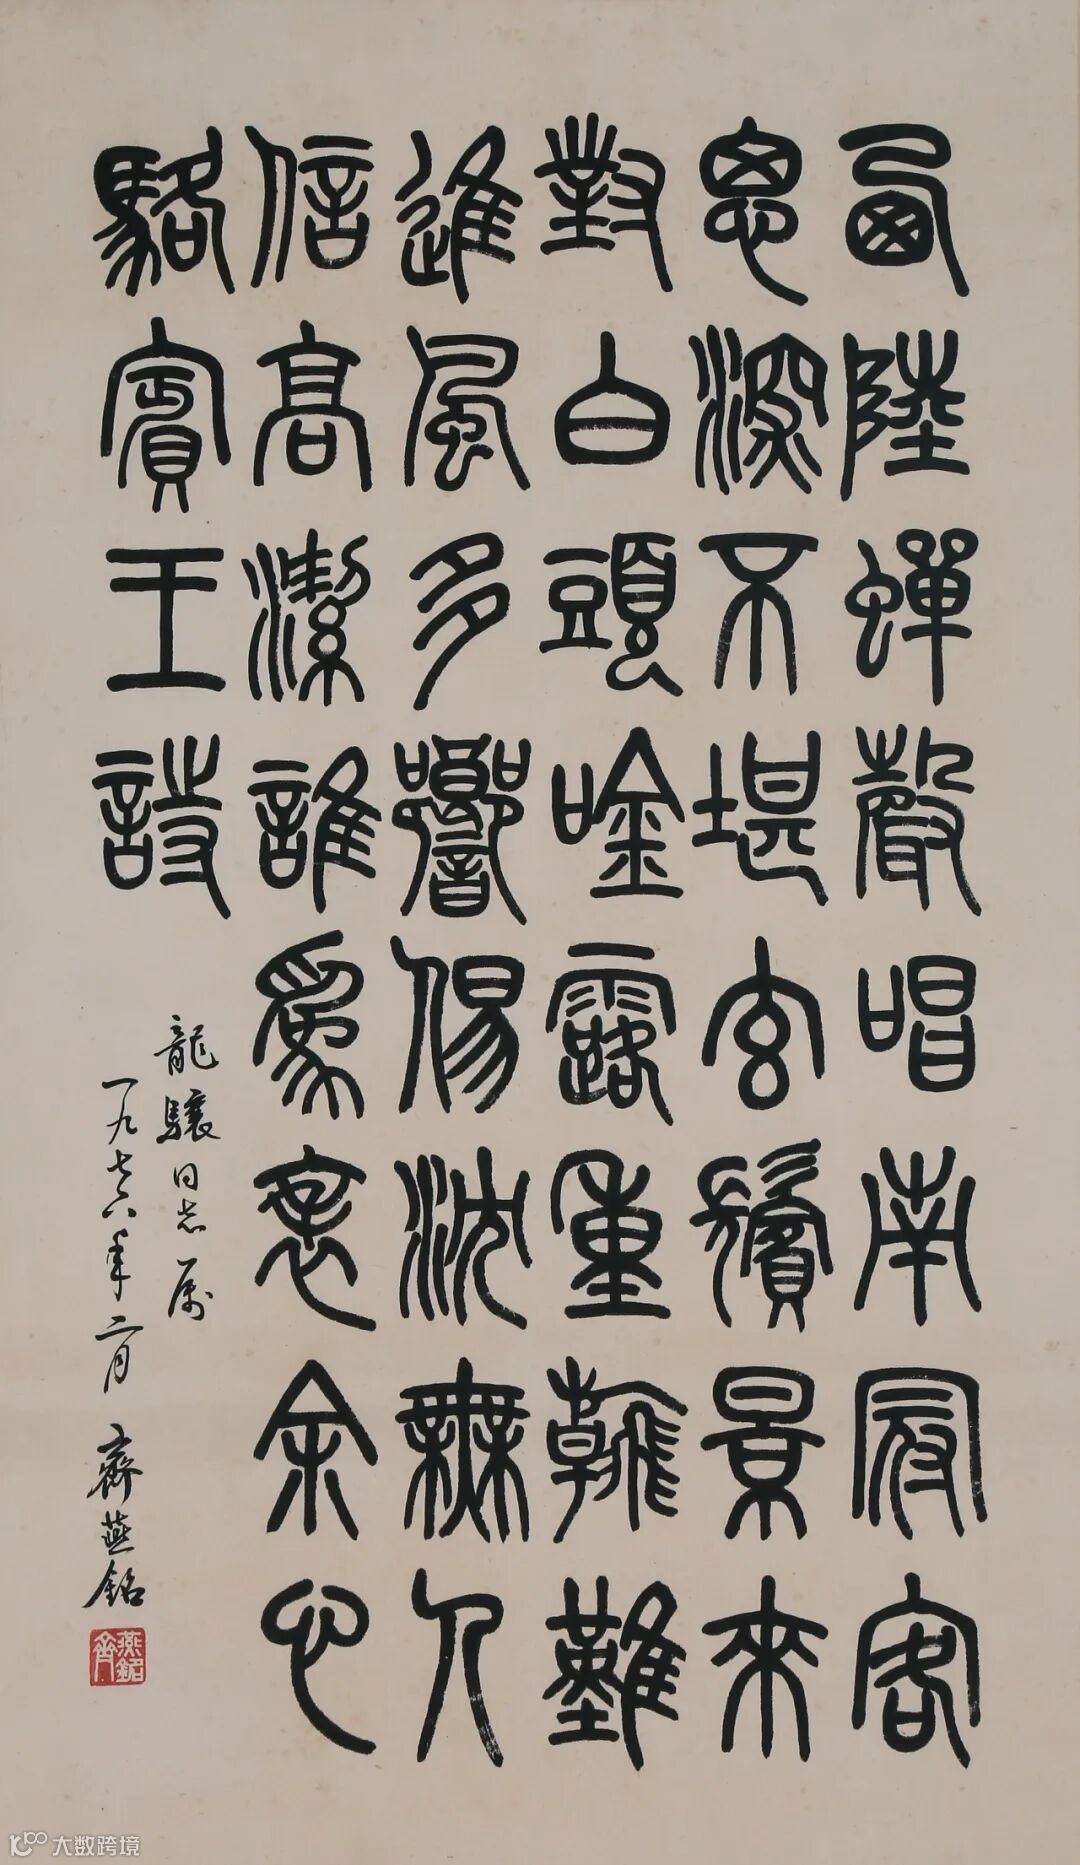 西陸蟬聲唱南冠客
思深不堪玄鬢景來
對白頭唫露重飛難
進風多響㑥沈無人
信高潔誰為表余心
駱賓王詩
龍驤同志屬
一九七六年二月 齊燕銘
齊燕銘
大数跨境